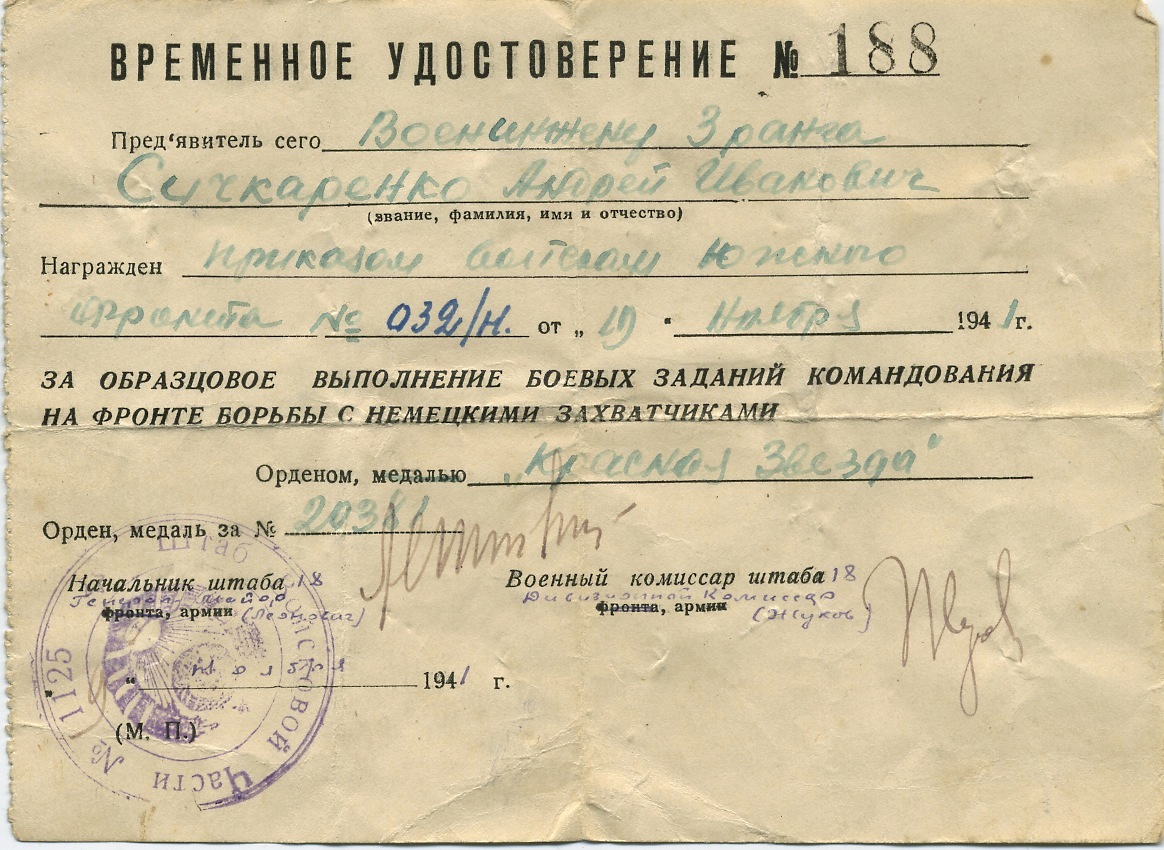 ВРЕМЕННОЕ УДОСТОВЕРЕНИЕ № 188
Пред‘явитель сего Военинженер 3 ранга
Сичкаренко Андрей Иванович
(звание, фамилия, имя и отчество)
Награжден приказом войскам Южного
Фронта № 032/н. от „ 19 “ Ноября 1941 г.
ЗА ОБРАЗЦОВОЕ ВЫПОЛНЕНИЕ БОЕВЫХ ЗАДАНИЙ КОМАНДОВАНИЯ
НА ФРОНТЕ БОРЬБЫ С НЕМЕЦКИМИ ЗАХВАТЧИКАМИ
Орденом, медалью „Красная Звезда“
Орден, медаль за №
Начальник штаба 18
Генерал майор
фронта, армии (Леонович)
Военный комиссар штаба 18
Дивизионной Комиссар
фронта, армии (Жуков)
„ “ ноября 1941 г.
(М. П.)
Штаб Войсковой Части № 1125